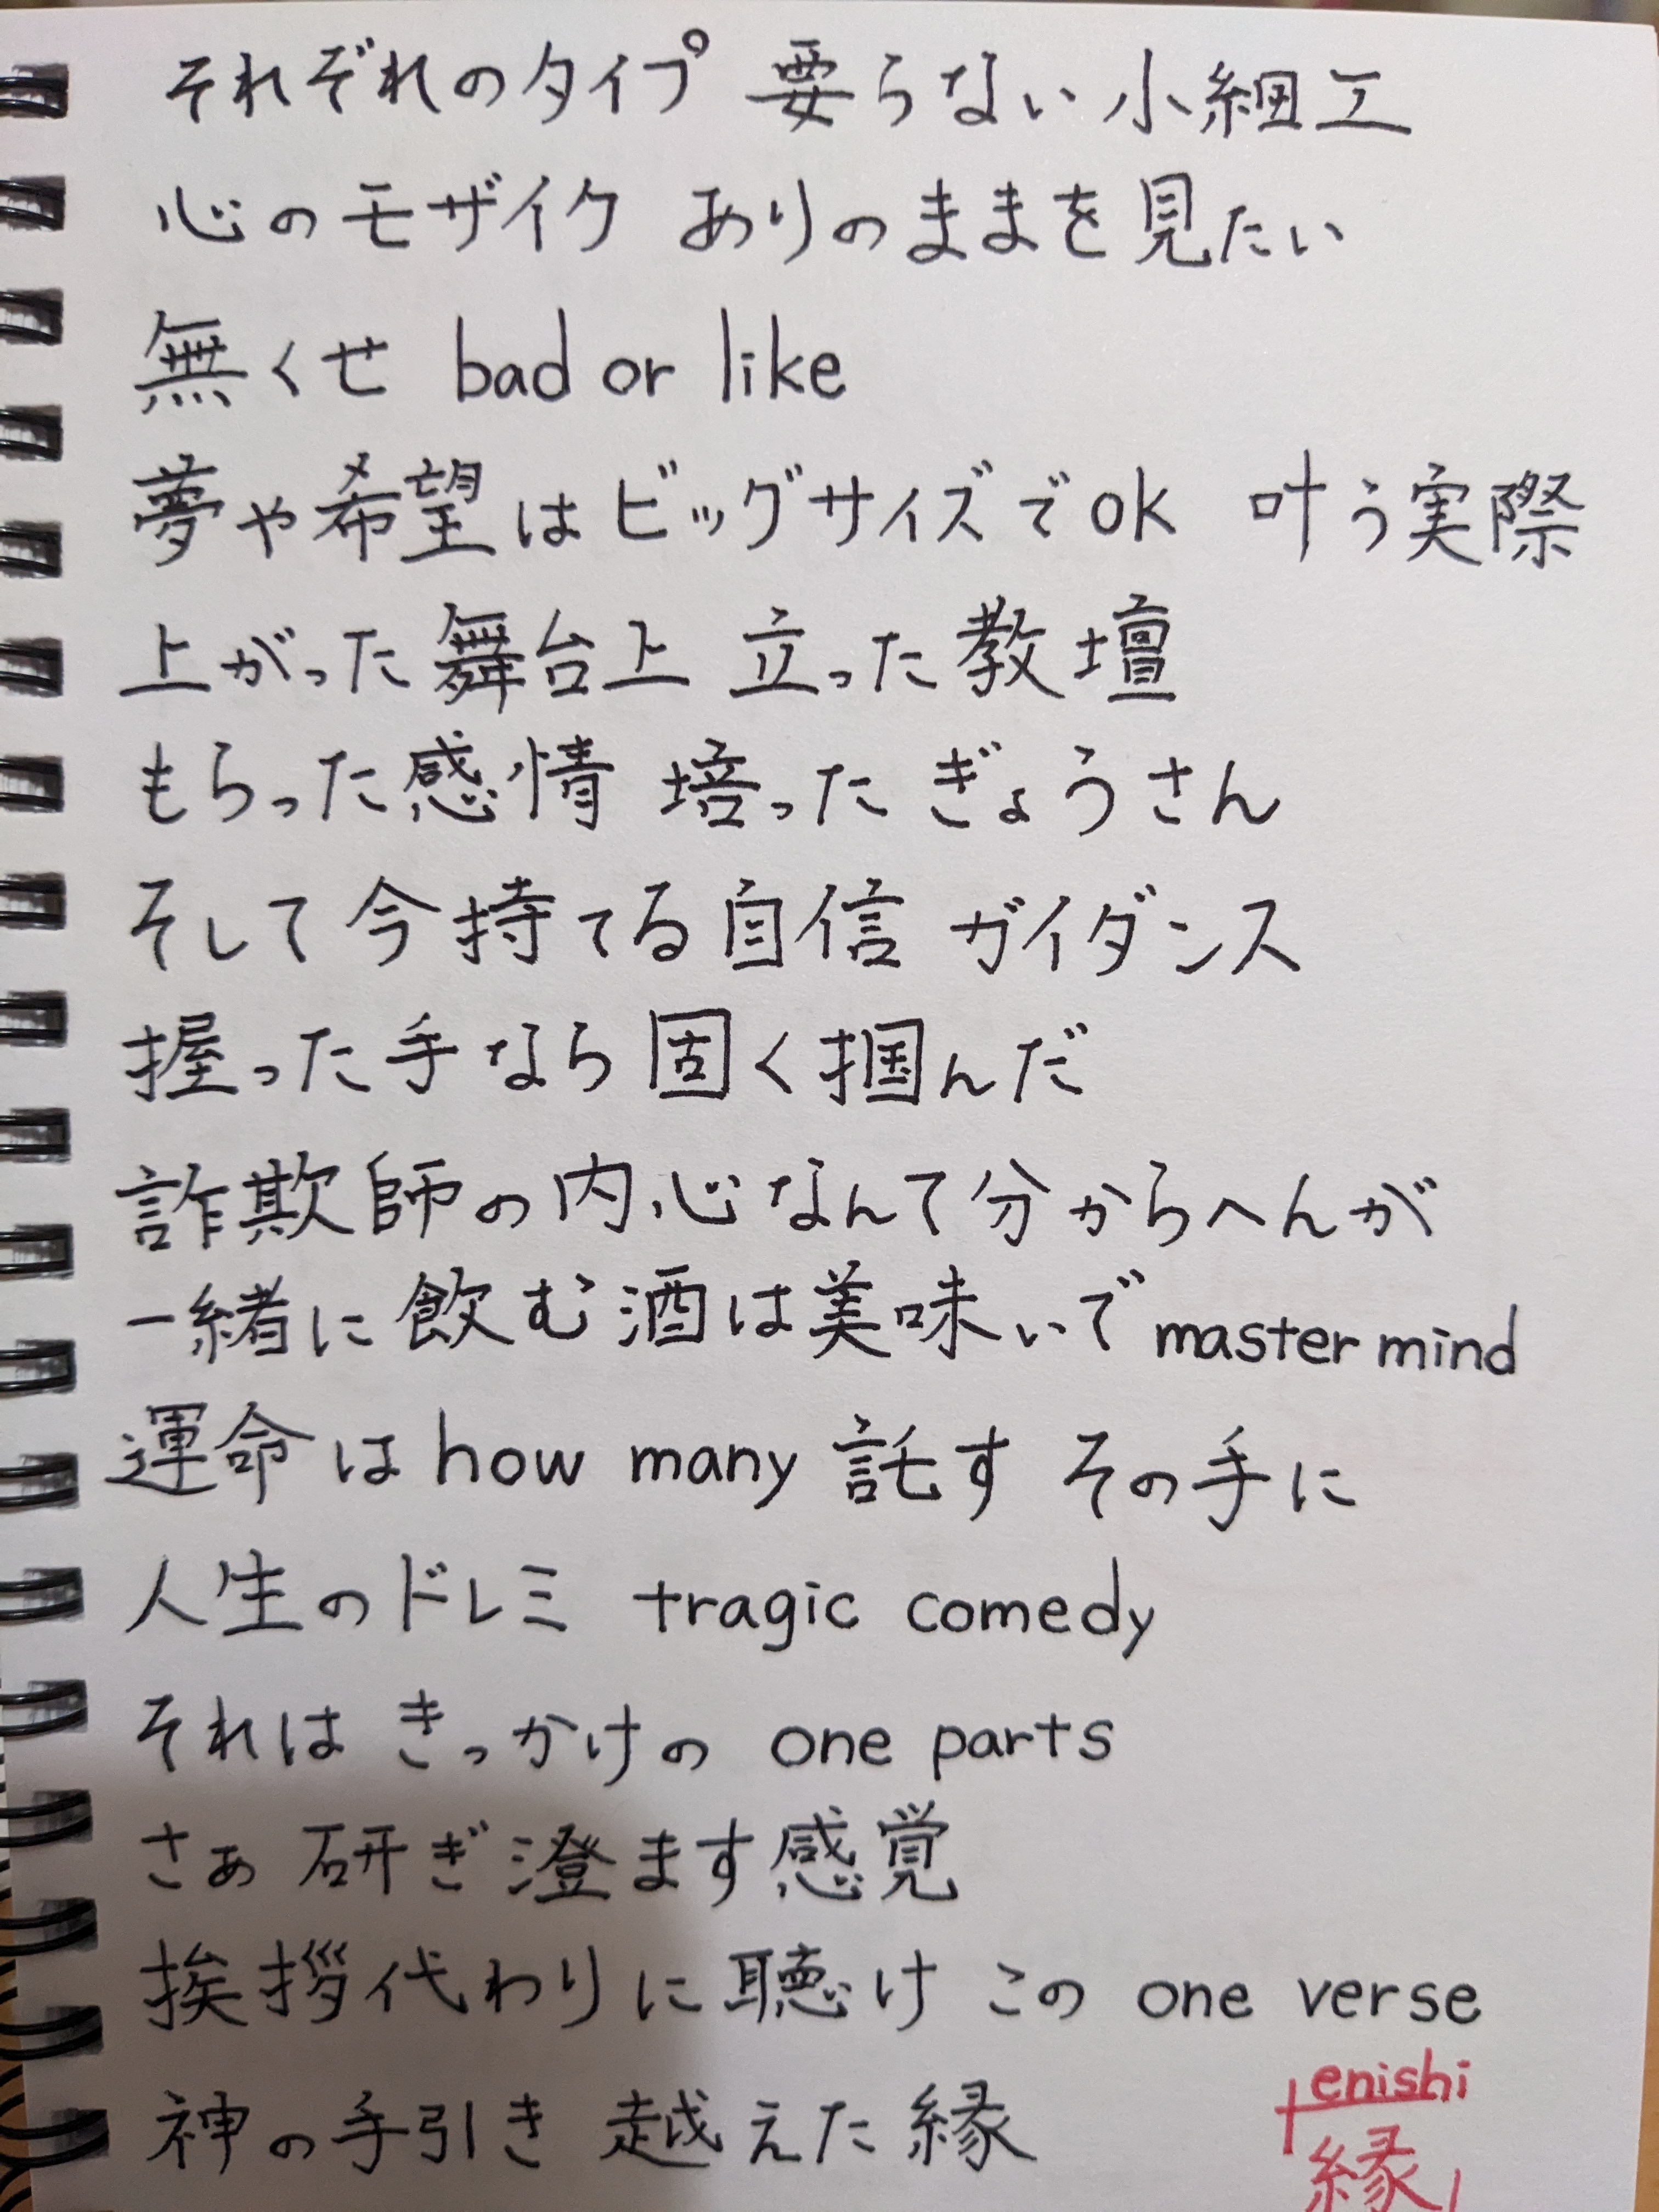 それぞれのタイプ 要らない小細工
心のモザイク ありのままを見たい
無くせ bad or like
夢や希望はビッグサイズでok 叶う実際
上がった舞台上 立った教壇
もらった感情 培った ぎょうさん
そして今持てる自信 ガイダンス
握った手なら固く掴んだ
詐欺師の内心なんて分からへんが
一緒に飲む酒は美味いで master mind
運命は how many 託す その手に
人生のドレミ tragic comedy
それは きっかけの one parts
さぁ 研ぎ澄ます感覚
挨拶代わりに聴け この one verse
神の手引き 越えた縁
enishi
縁